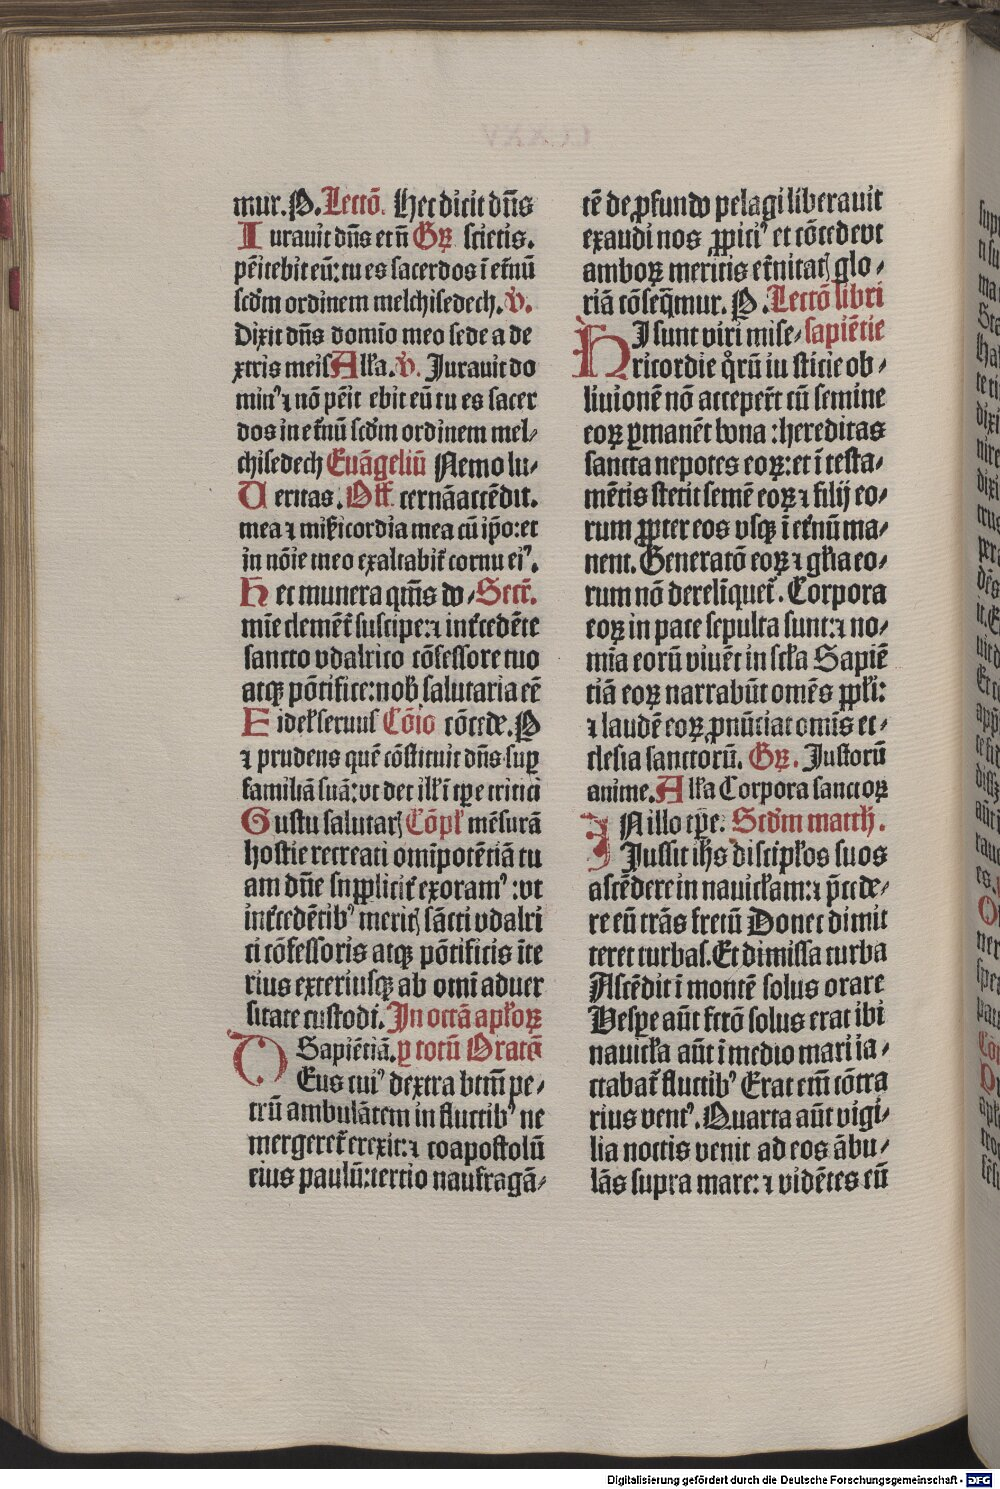 mur. P. Lectō. Hec dicit dn̄s
Iurauit dn̄s et n̄ Gꝝ scietis.
pēitebit eū: tu es sacerdos ī et̄nū
scdm̄ ordinem melchisedech. v̄.
Dixit dn̄s domīo meo sede a de
xtris meis Allꝛa. v̄. Jurauit do
minꝰ ⁊ nō pēit ebit eū tu es sacer
dos in et̄nū scdm̄ ordinem mel⸗
chisedech Euāgeliū Nemo lu⸗
Ueritas. Off. cernā accēdit.
mea ⁊ mīs̄icordia mea cū ip̄o: et
in nōie meo exaltabit̄ cornu eiꝰ.
Hec munera qm̄s do⸗ Secr̄.
mīe clemēt̄ suscipe: ⁊ int̄cedēte
sancto vdalrico cōfessore tuo
atqꝫ pōtifice: nob̄ salutaria eē
Fidel̄ seruus Cōio cōcede. P
⁊ prudens quē cōstituit dn̄s sup̄
familiā suā: vt det ill̄ ī tp̄e tritici
Gustu salutarꝭ Cōpl̄ mēsurā
hostie recreati omīpotētiā tu
am dn̄e supplicit̄ exoramꝰ: vt
int̄cedētibꝰ meritꝭ sācti vdalri
ci cōfessoris atqꝫ pōtificis īte
rius exteriusqꝫ ab omī aduer
sitate custodi. In octā apl̄oꝝ
Sapiētiā. ꝑ totū Oratō
DEus cuiꝰ dextra btm̄ pe⸗
trū ambulātem in fluctibꝰ ne
mergeret̄ erexit: ⁊ coapostolū
eius paulū: tertio naufragā⸗
tē de ꝓfundo pelagi liberauit
exaudi nos ꝓpiciꝰ et cōcede vt
amboꝝ meritis et̄nitatꝭ glo⸗
riā cōseq̄mur. P. Lectō libri
HIsunt viri mise⸗ sapiētie
ricordie q̊rū iu sticie ob⸗
liuionē nō accepert̄ cū semine
eoꝝ ꝑmanēt bona: hereditas
sancta nepotes eoꝝ: et ī testa⸗
mētis stetit semē eoꝝ ⁊ filij eo⸗
rum ꝓpter eos vsqꝫ ī et̄nū ma⸗
nent. Generatō eoꝝ ⁊ gl̄ia eo⸗
rum nō derelīquet̄. Corpora
eoꝝ in pace sepulta sunt: ⁊ no⸗
mīa eorū viuēt in scl̄a Sapiē
tiā eoꝝ narrabūt omēs ppl̄i:
⁊ laudē eoꝝ ꝓnūciat omīs ec⸗
clesia sanctorū. Gꝝ. Justorū
anime. Allꝛa Corpora sanctoꝝ
INillo tp̄e. Scdm̄ matth̄.
Jussit ih̄s discipl̄os suos
ascēdere in nauicl̄am: ⁊ p̄cede⸗
re eū trās fretū Donec dimit
teret turbas. Et dimissa turba
Ascēdit ī montē solus orare
Vespe aūt fc̄to solus erat ibi
nauicl̄a aūt ī medio mari ia⸗
ctabat̄ fluctibꝰ Erat em̄ cōtra
rius ventꝰ. Quarta aūt vigi⸗
lia noctis venit ad eos ābu⸗
lās supra mare: ⁊ vidētes eū
Digitalisierung gefördert durch die Deutsche Forschungsgemeinschaft - DFG